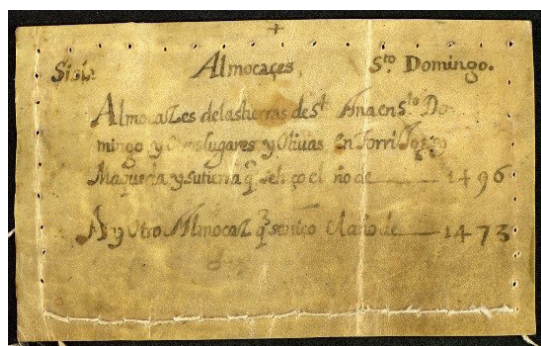 Almocaçes Sto. Domingo.
Almocazes de las tierras de Sta. Ana en Sto. Do-
mingo y otros lugares y Olivas en Torri
Maqueda y su tierra q̃ se hiço el año de 1496
Ay otro Almocaz q̃ se hiço el año de 1473